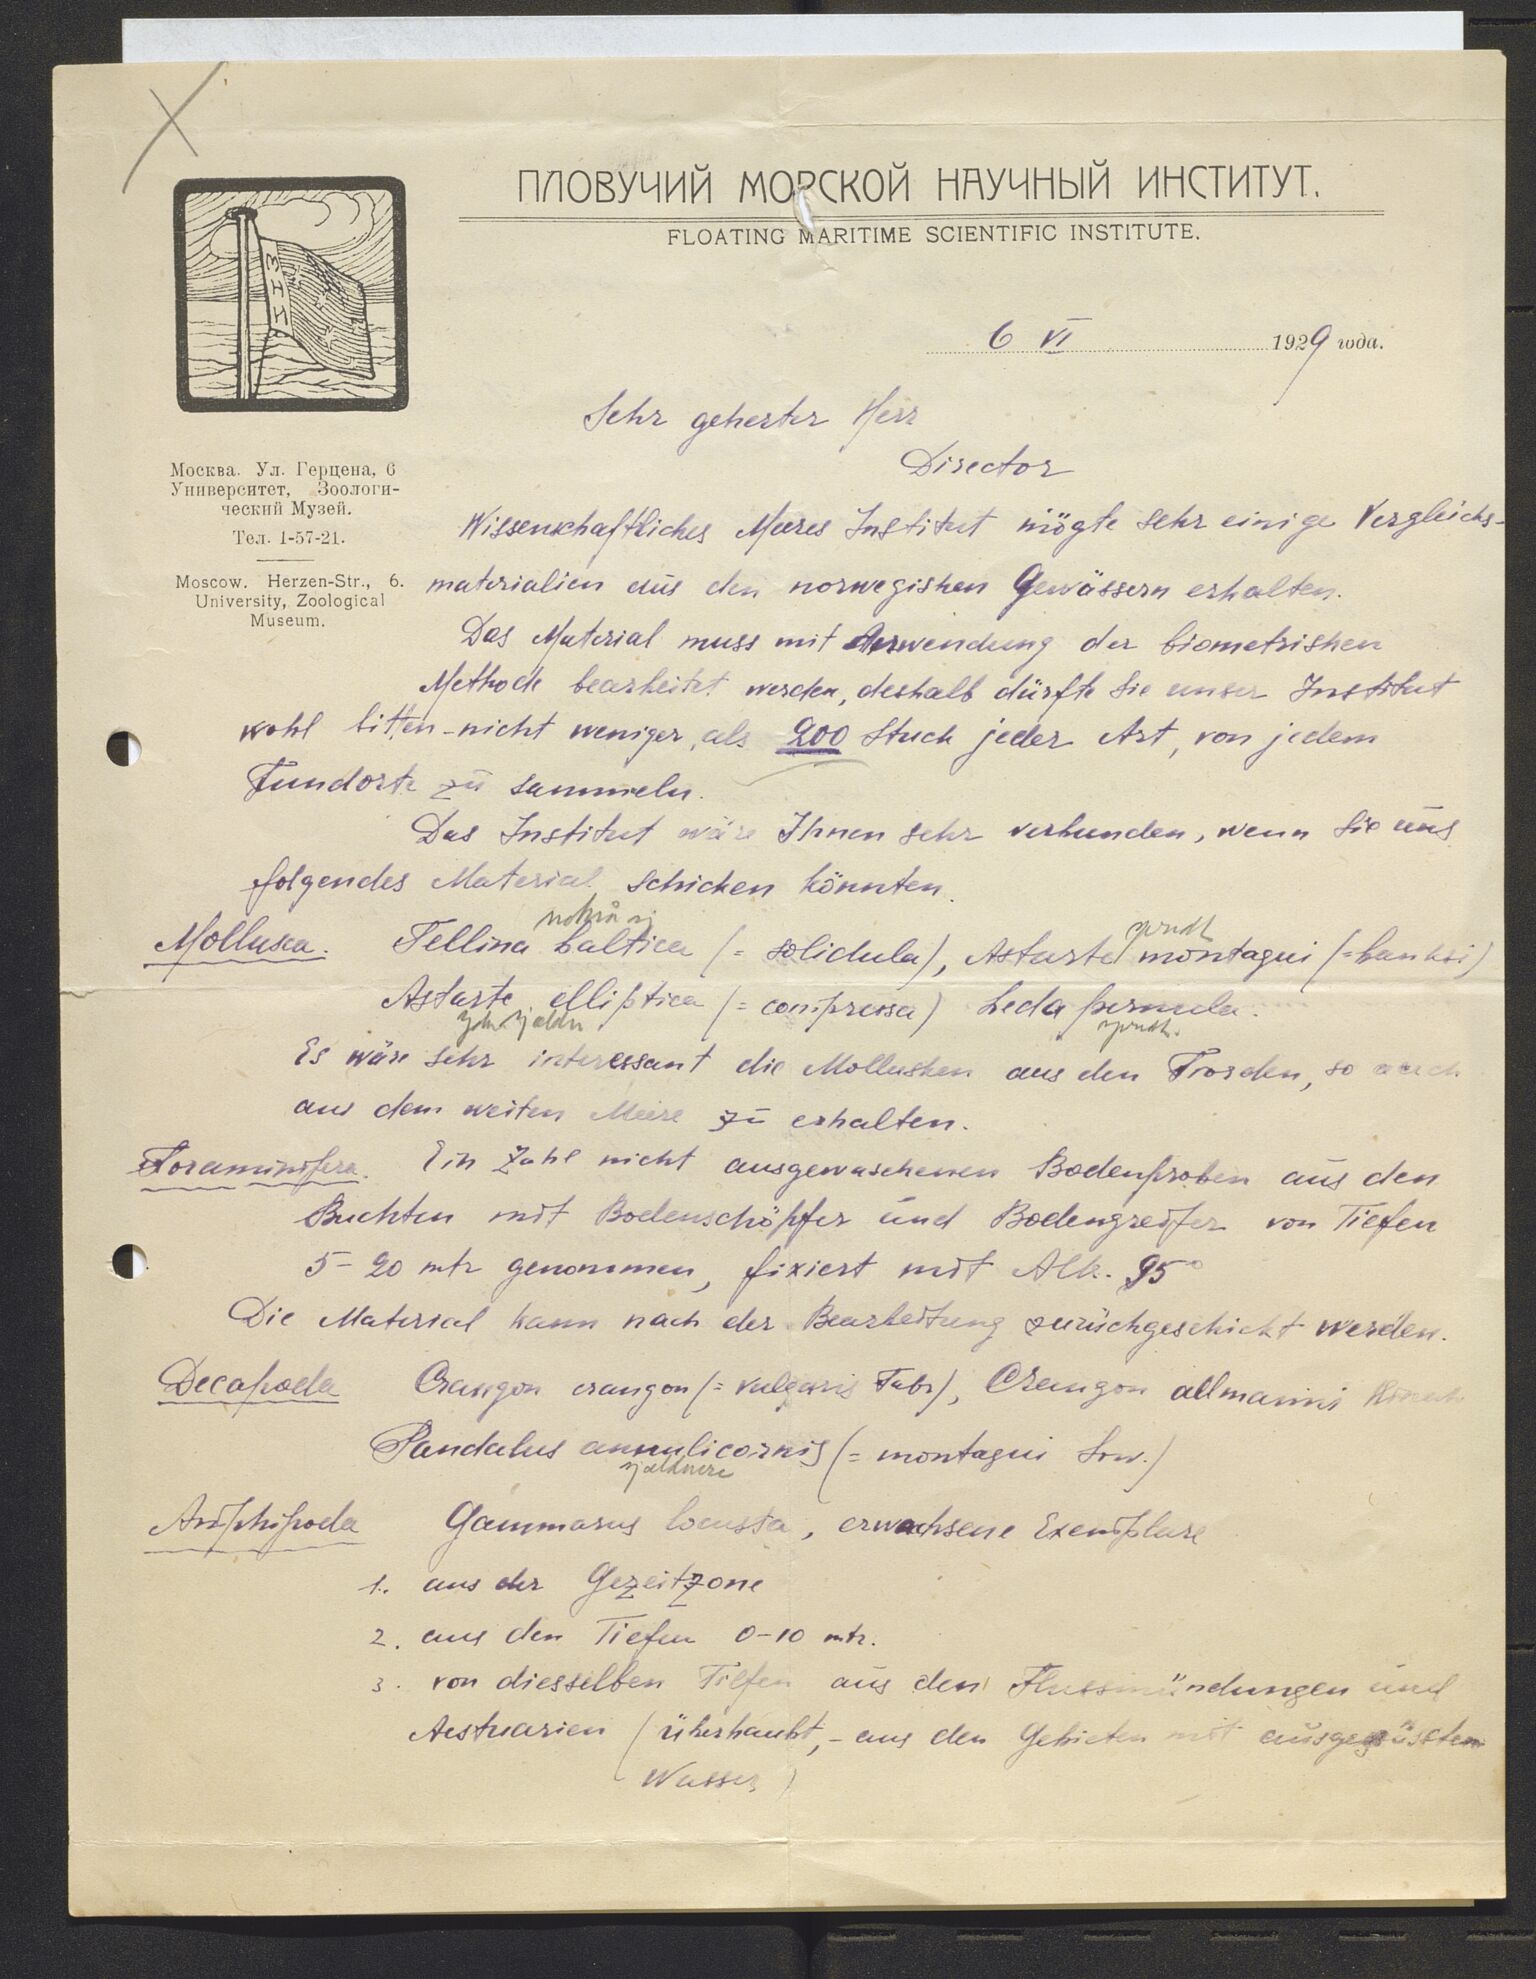 ПЛОВУЧИЙ МОРСКОЙ НАУЧНЫЙ ИНСТИТУТ.
FLOATING MARITIME SCIENTIFIC INSTITUTE.
6 VI 1929 года.
Москва. Ул. Герцена, 6
Университет, Зоологи-
ческий Музей.
Тел. 1-57-21.
Moscow. Herzen-Str., 6.
University, Zoological
Museum.
Sehr geherter Herr
Director
Wissenschaftliches Meeres Institut mögte sehr einige Vergleichs-
materialien aus den norwegishen Gewässern erhalten.
Das Material muss mit Anwendung der biometrishen
Methode bearbeitet werden, deshalb dürfte Sie unser Institut
wohl bitten - nicht weniger, als 200 Stuck jeder Art, von jedem
Fundorte zu sammeln.
Das Institut wäre Ihnen sehr verbunden, wenn Sie uns
folgendes Material schicken könnten.
Mollusca. Tellina baltica (= solidula), Astarte montagui (= banksi)
Astarte elliptica (= compressa) Leda pernula.
Es wäre sehr interessant die Mollusken aus den Fiorden, so auch
aus dem weiten Meere zu erhalten.
Foraminifera. Ein Zahl nicht ausgewaschenen Bodenproben aus den
Buchten mit Bodenschöpfer und Bodengreifer von Tiefen
5-20 mtr genommen, fixiert mit Alk. 95°
Die Material kann nach der Bearbeitung zurückgeschickt werden.
Decapoda Crangon crangon (= vulgaris Fabr), Crangon allmanni Kinah
Pandalus annulicornis (= montagui Sow.)
sjeldnere
Amphipoda Gammarus locusta, erwachsene Exemplare
1. aus der Gezeitzone
2. aus den Tiefen 0-10 mtr.
3. von diesselben Tiefen aus den Flussmündungen und
Aestuarien (überhaubt, - aus den Gebieten mit ausgesüsstem
Wasser)